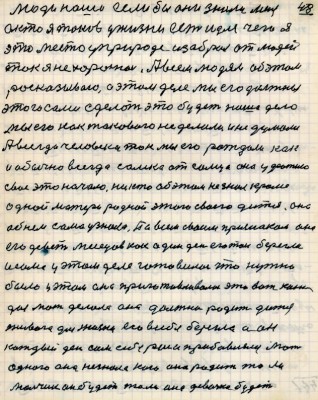 люди наши Если бы они знали мы 48
кто я таков у жизни Ему идти чего я
это место у природе избрал от людей
так я не хоронюсь, А всем людям об этом
рассказываю, а этом деле мы его должны
этого сами сделать это будет наше дело
мы его как такового не делали и не думали
А всегда человека так мы его рождали как
и обычно всегда самка от самца она удачно
свое это начало, никто об этом не знал кроме
одной матери родной этого своего дитя, она
об нем сама узнала, По всем своим признакам она
его девять месяцев как один день его там берегла
и сама у этом деле готовилась это нужно
было у этом она приготавливала это вот жизнь
для мать делала она должна родить дитя
живого для жизни его в себе берегла а он
каждый день сам себе рос и прибавлялся Мать
одного она не знала кого она родит то ли
мальчик он будет то ли она девочка будет